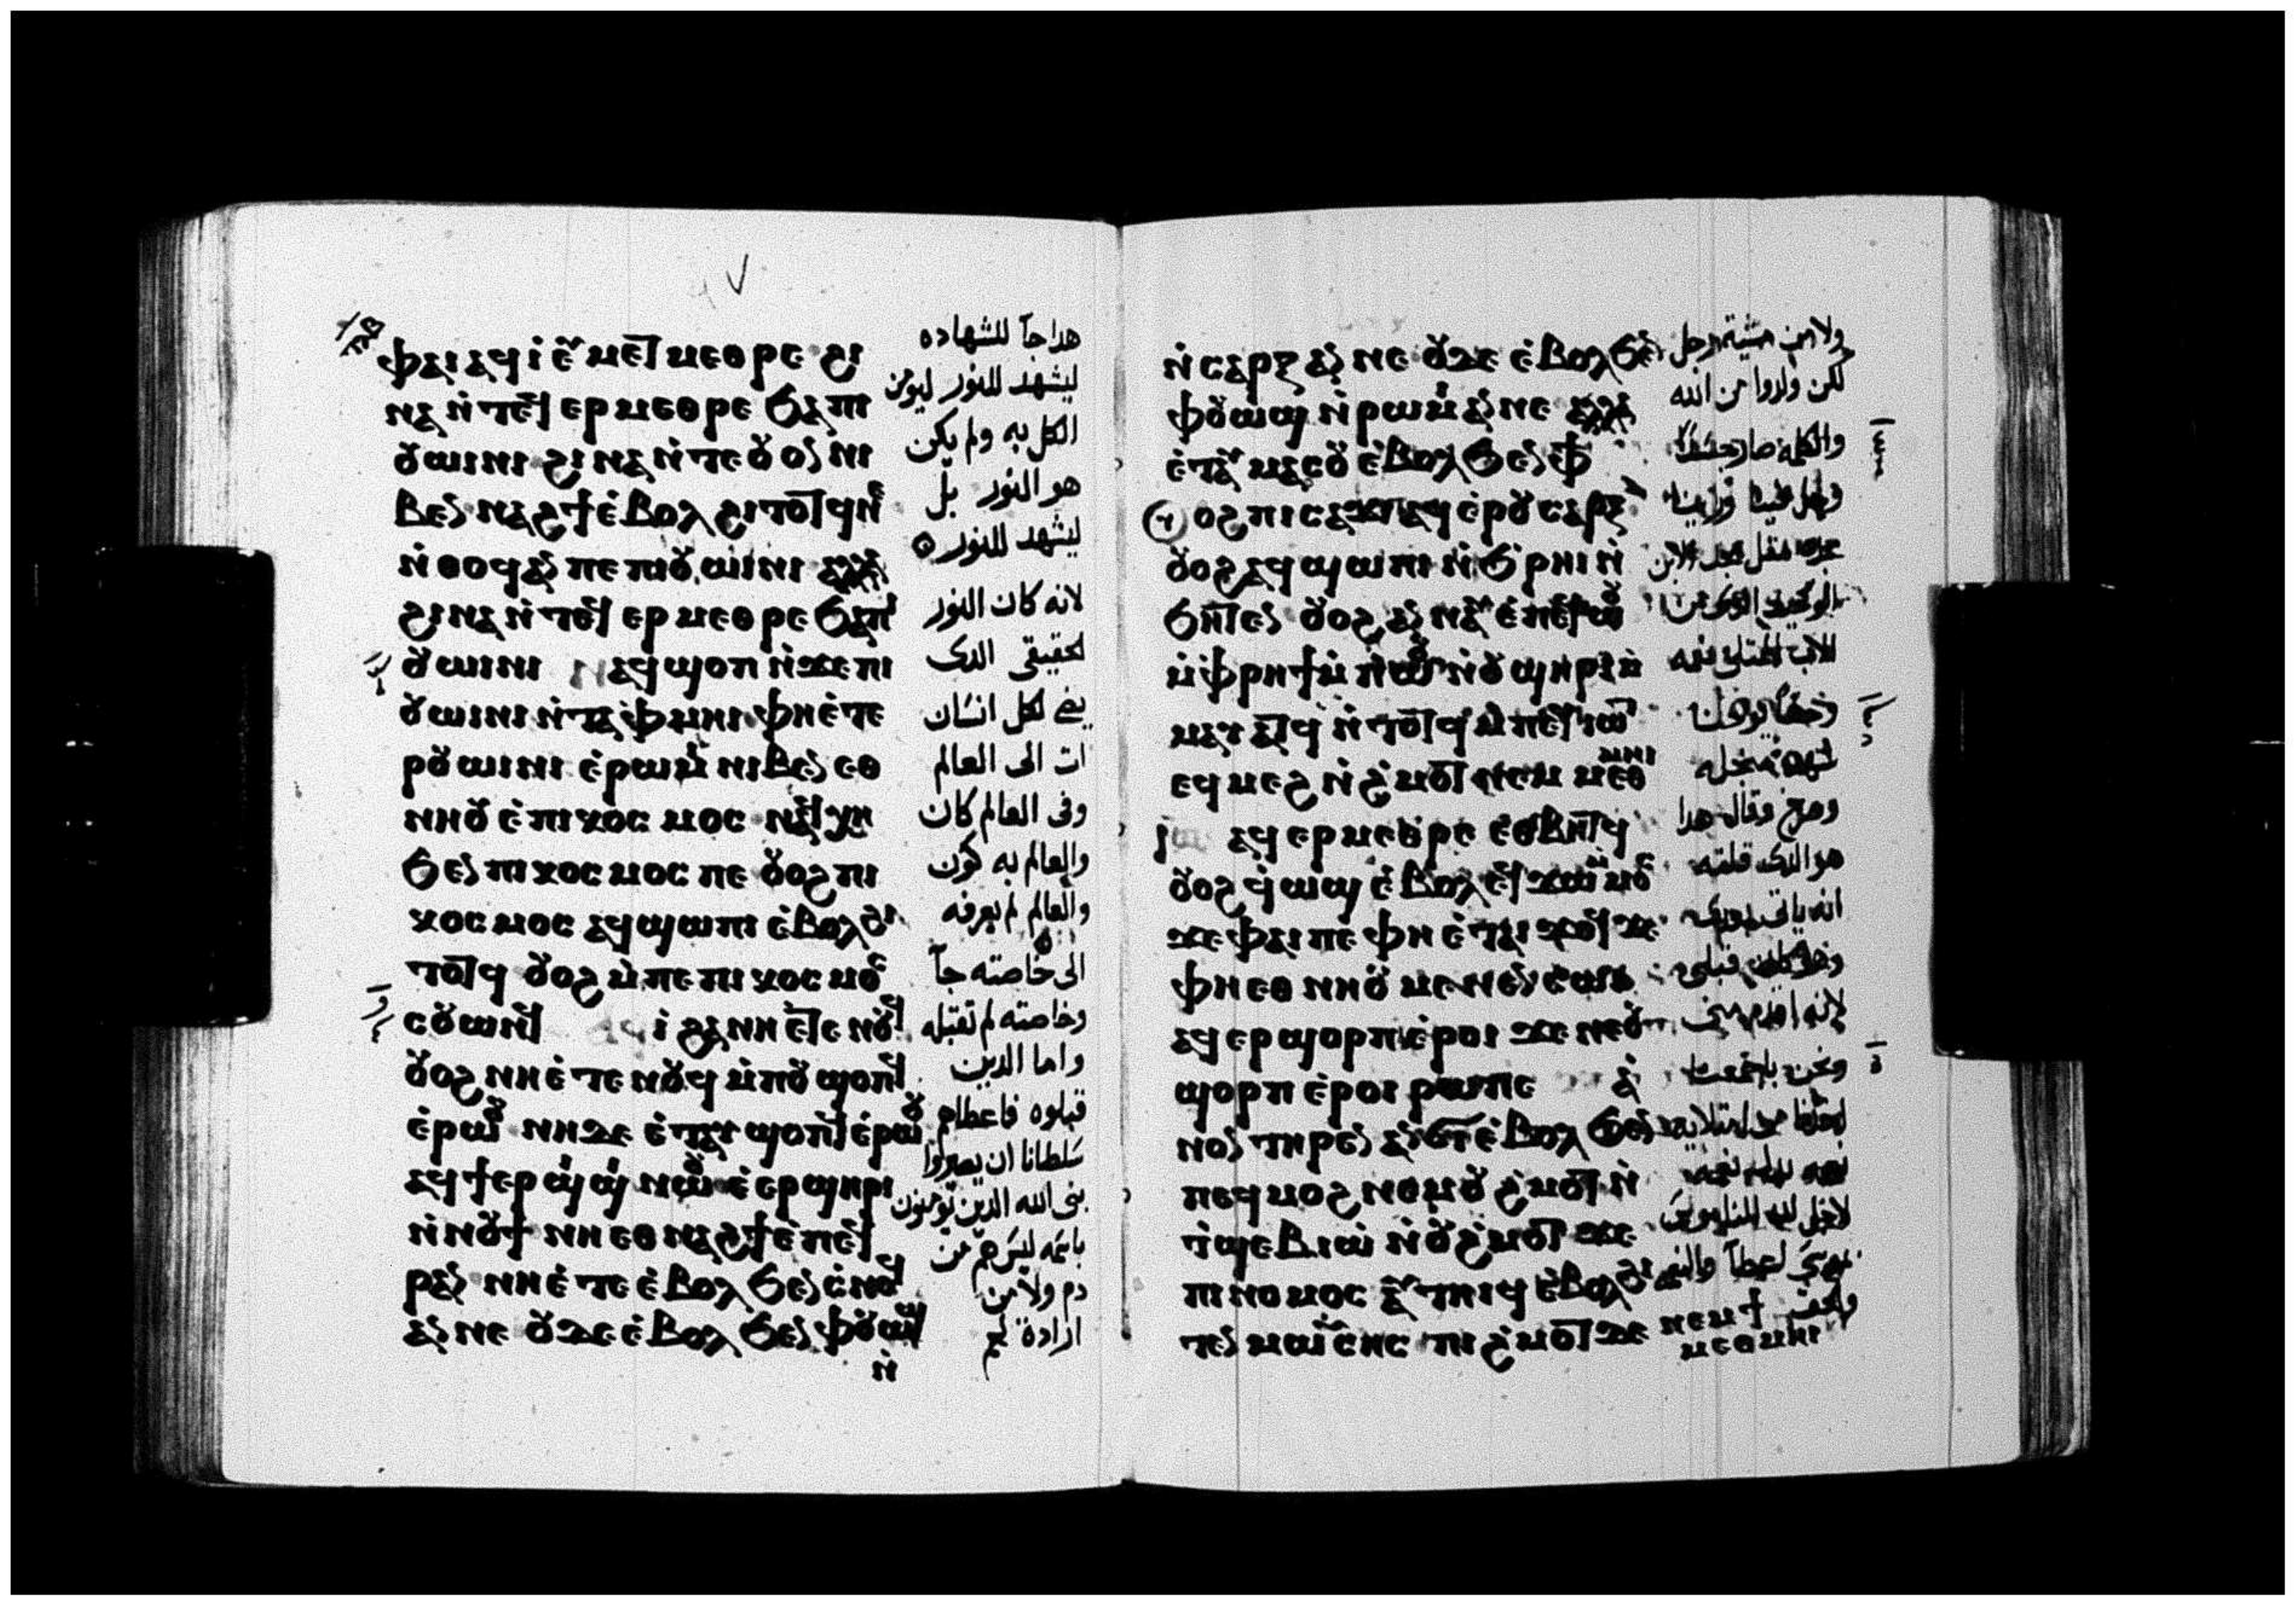 ⲫⲁⲓ ⲁϥⲓ ⲉⲩⲙⲉⲧⲙⲉⲑⲣⲉ ϩⲓ
ⲛⲁ ⲛ̀ⲧⲉϥ ⲉⲣⲙⲉⲑⲣⲉ ϧⲁ ⲡⲓ
ⲟⲩⲱⲓⲛⲓ ϩⲓⲛⲁ ⲛ̀ⲧⲉ ⲟⲩⲟⲛ ⲛⲓ
ⲃⲉⲛ ⲛⲁϩϯ ⲉ̀ⲃⲟⲗ ϩⲓⲧⲟⲧϥ ⲛⲉ
ⲛ̀ⲑⲟϥ ⲁⲛ ⲡⲉ ⲡⲓⲟⲩⲱⲓⲛⲓ ⲁⲗⲗⲁ
ϩⲓⲛⲁ ⲛ̀ⲧⲉϥ ⲉⲣⲙⲉⲑⲣⲉ ϧⲁ ⲡⲓ
ⲟⲩⲱⲓⲛⲓ ⲛⲁϥϣⲟⲡ ⲛ̀ϫⲉ ⲡⲓ
ⲟⲩⲱⲓⲛⲓ ⲛ̀ⲧⲁⲫⲙⲏⲓ ⲫⲏ ⲉ̀ⲧⲉ
ⲣⲟⲩⲱⲓⲛⲓ ⲉ̀ⲣⲱⲙⲓ ⲛⲓⲃⲉⲛ ⲉⲑ
ⲛⲏⲟⲩ ⲉ̀ⲡⲓⲕⲟⲥⲙⲟⲥ ⲛⲁϥⲭⲏ
ϧⲉⲛ ⲡⲓⲕⲟⲥⲙⲟⲥ ⲡⲉ ⲟⲩⲟϩ ⲡⲓ
ⲕⲟⲥⲙⲟⲥ ⲁϥϣⲱⲡⲓ ⲉ̀ⲃⲟⲗ ϩⲓ
ⲧⲟⲧϥ ⲟⲩⲟϩ ⲙ̀ⲡⲉ ⲡⲓⲕⲟⲥⲙⲟⲥ
ⲥⲟⲩⲱⲛϥ ⲁϥⲓ ϩⲁ ⲛⲏ ⲉⲧⲉ ⲛⲟⲩϥ
ⲟⲩⲟϩ ⲛⲏ ⲉ̀ⲧⲉ ⲛⲟⲩϥ ⲙ̀ⲡⲟⲩϣⲟⲡϥ
ⲉ̀ⲣⲱⲟⲩ ⲛⲏ ⲇⲉ ⲉ̀ⲧⲁⲩϣⲟⲡϥ ⲉ̀ⲣⲱⲟⲩ
ⲁϥϯⲉⲣϣⲓϣⲓ ⲛⲱⲟⲩ ⲉ̀ⲉⲣϣⲏⲣⲓ
ⲛ̀ⲛⲟⲩϯ ⲛⲏ ⲉⲑⲛⲁϩϯ ⲉ̀ⲡⲉϥ
ⲣⲁⲛ ⲛⲏ ⲉ̀ⲧⲉ ⲉ̀ⲃⲟⲗ ϧⲉⲛ ⲥ̀ⲛⲟϥ
ⲁⲛ ⲛⲉ ⲟⲩⲇⲉ ⲉ̀ⲃⲟⲗ ϧⲉⲛ ⲫⲟⲩⲱϣ
ⲛ̀
هدا جآ للشهاده
ليشهد للنور ليومن
الكل به ولم يكن
هو النور بل
ليشهد للنور
لانه كان النور
لحقيقى الدى
يضى لكل انسان
ات الى العالم
وفى العالم كان
والعالم به كون
والعالم لم يعرفه
الى خاصته جآ
وخاصته لم تقبله
واما الدين
قبلوه فاعطاهم
سلطانا ان يصيروا
بنى الله الدين يومنون
باسمه ليس هم من
دم ولا من
ارادة لحم
ⲛ̀ⲥⲁⲣⲝ ⲁⲛ ⲛⲉ ⲟⲩⲇⲉ ⲉ̀ⲃⲟⲗ ϧⲉⲛ
ⲫⲟⲩⲱϣ ⲛ̀ⲣⲱⲙⲓ ⲁⲛ ⲛⲉ ⲁⲗⲗⲁ
ⲉ̀ⲧⲁⲩⲙⲁⲥⲟⲩ ⲉ̀ⲃⲟⲗ ϧⲉⲛ ⲫϯ
ⲟⲩⲟϩ ⲡⲓⲥⲁϫⲓ ⲁϥⲉⲣⲟⲩⲥⲁⲣⲝ
ⲟⲩⲟϩ ⲁϥϣⲱⲡⲓ ⲛ̀ϧ̀ⲣⲏⲓ ⲛ̀
ϧⲏⲧⲉⲛ ⲟⲩⲟϩ ⲁⲛⲛⲁⲩ ⲉ̀ⲡⲉϥⲱⲟⲩ
ⲙ̀ⲫⲣⲏϯ ⲙ̀ⲡⲱⲟⲩ ⲛ̀ⲟⲩϣⲏⲣⲓ ⲙ̀
ⲙⲁⲩⲁⲧϥ ⲛ̀ⲧⲟⲧϥ ⲙ̀ⲡⲉϥⲓⲱⲧ
ⲉϥⲙⲉϩ ⲛ̀ϩ̀ⲙⲟⲧ ⲛⲉⲙ ⲙⲉⲑⲙⲏⲓ
ⲓⲱ ⲁϥⲉⲣⲙⲉⲑⲣⲉ ⲉⲑⲃⲏⲧϥ
ⲟⲩⲟϩ ϥ̀ⲱϣ ⲉ̀ⲃⲟⲗ ⲉϥϫⲱ ⲙⲙⲟⲥ
ϫⲉ ⲫⲁⲓ ⲡⲉ ⲫⲏ ⲉ̀ⲧⲁⲓϫⲟϥ ϫⲉ
ⲫⲏ ⲉⲑⲛⲏⲟⲩ ⲙⲉⲛⲉⲛⲥⲱⲓ
ⲁϥⲉⲣϣⲟⲣⲡ ⲉ̀ⲣⲟⲓ ϫⲉ ⲛⲉⲟⲩ
ϣⲟⲣⲡ ⲉ̀ⲣⲟⲓ ⲣⲱ ⲡⲉ ⲁ̀
ⲛⲟⲛ ⲧⲏⲣⲉⲛ ⲁⲛϭⲓ ⲉ̀ⲃⲟⲗ ϧⲉⲛ
ⲡⲉϥⲙⲟϩ ⲛⲉⲙ ⲟⲩϩ̀ⲙⲟⲧ ⲛ̀
ⲧ̀ϣⲉⲃⲓⲱ ⲛ̀ⲟⲩϩ̀ⲙⲟⲧ ϫⲉ
ⲡⲓⲛⲟⲙⲟⲥ ⲁⲩⲧⲏⲓϥ ⲉ̀ⲃⲟⲗ ϩⲓ
ⲧⲉⲛ ⲙⲱⲩⲥⲏⲥ ⲡⲓϩ̀ⲙⲟⲧ ⲇⲉ ⲛⲉⲙ ϯ
ⲙⲉⲑⲙⲏⲓ
ولا من مشية رجل
لكن ولدوا من الله
والكلمه صار جسدًا
وحل فينا وراينا
مجده مثل مجد الابن
الوحيد
الاب الممتلى نعمه
وصرخ وقال هدا
هو الدى قلته
انه ياتى بعدى